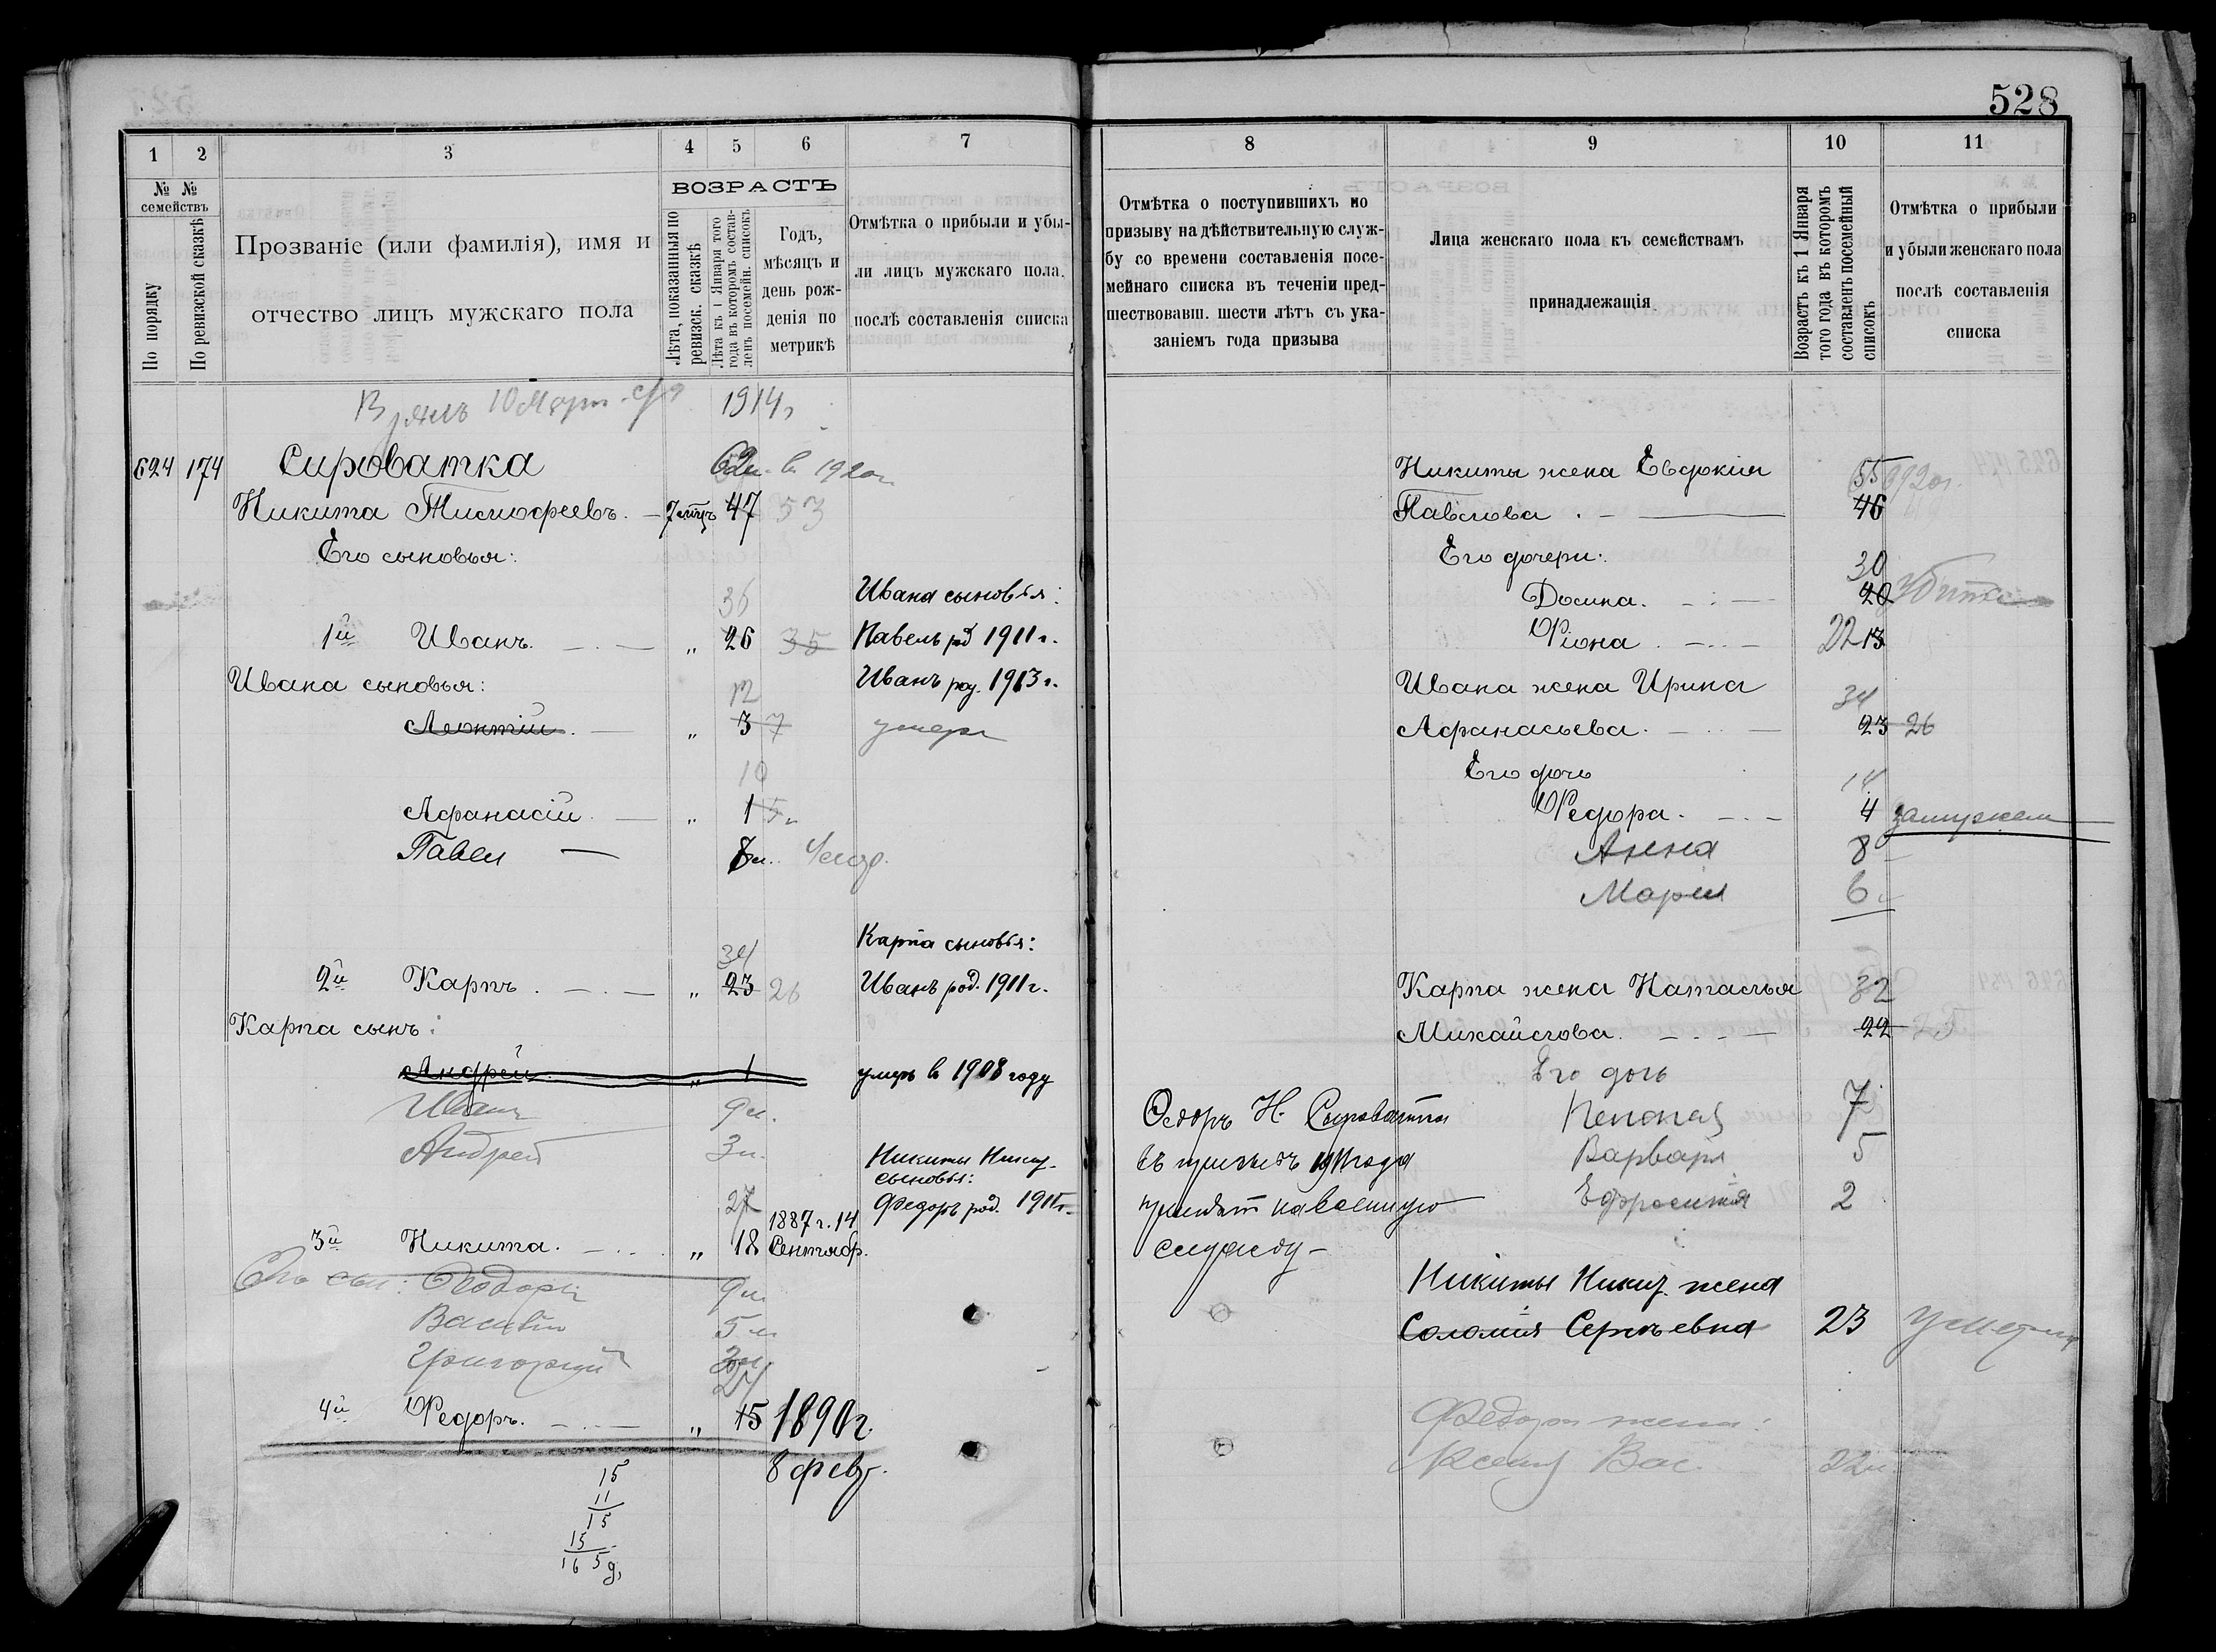 528
1
2
3
4
5
6
7
№ №
семействъ
По порядку
По ревизской сказкѣ
Прозваніе (или фамилія), имя и
отчество лицъ мужскаго пола
ВОЗРАСТЪ
Лѣта, показанныя по
ревизск. сказкѣ
Лѣта къ 1 Января того
года въ которомъ состав-
ленъ посемейн. списокъ
Годъ,
мѣсяцъ и
день рож-
денія по
метрикѣ
Отмѣтка о прибыли и убы-
ли лицъ мужскаго пола,
послѣ составленія списка
10 1914
624 174 Сироватка в 1920
Никита Тимофеевъ. 47 53
Его сыновья:
36 Ивана сыновья:
1й Иванъ. „ 26 35 Павелъ род 1911 г.
Ивана сыновья: Иванъ род. 1913 г.
12
Леонтій. „ 3 7 умеръ
10
Афанасій „ 1
Павел
Карпа сыновья:
34
2й Карпъ. „ 23 26 Иванъ род. 1911 г.
Карпа сынъ:
Андрей „ 1 умеръ в 1908 году
Иванъ 9 л.
Андрей 3 л.
Никиты Никит.
сыновья:
27 1887 г. 14 Федоръ род.
3й Никита. „ 18 Сентябр.
Его сын: Феодоръ 9 л.
Василій 5 л.
Григорий
24
4й Федоръ. „ 15 1890 г.
8 февр.
15
11
15
15
16 5
8
9
10
11
Отмѣтка о поступившихъ по
призыву на дѣйствительную служ-
бу со времени составленія посе-
мейнаго списка въ теченіи пред-
шествовавш. шести лѣтъ съ ука-
заніемъ года призыва
Лица женскаго пола къ семействамъ
принадлежащія
Возрастъ къ 1 Января
того года въ которомъ
составленъ посемейный
списокъ
Отмѣтка о прибыли
и убыли женскаго пола
послѣ составленія
списка
Никиты жена Евдокія 55
Павлова 46
Его дочери: 30
Домна. 20
Фіона 22 13
Ивана жена Ирина 34
Афанасьева. 23 26
Его дочь 14
Федора. 4 замужем
Анна 8
Марія 6
Карпа жена Наталья 32
Михайлова. 22 25
Его дочь
Федоръ Н. Сыроватка 7
въ призывъ 1911 года Варвара 5
принят на военную Ефросинія 2
службу
Никиты Никит. жена
Соломія Сергѣевна 23 умерла
Федора жена:
Ксенія Вас. 22 л.